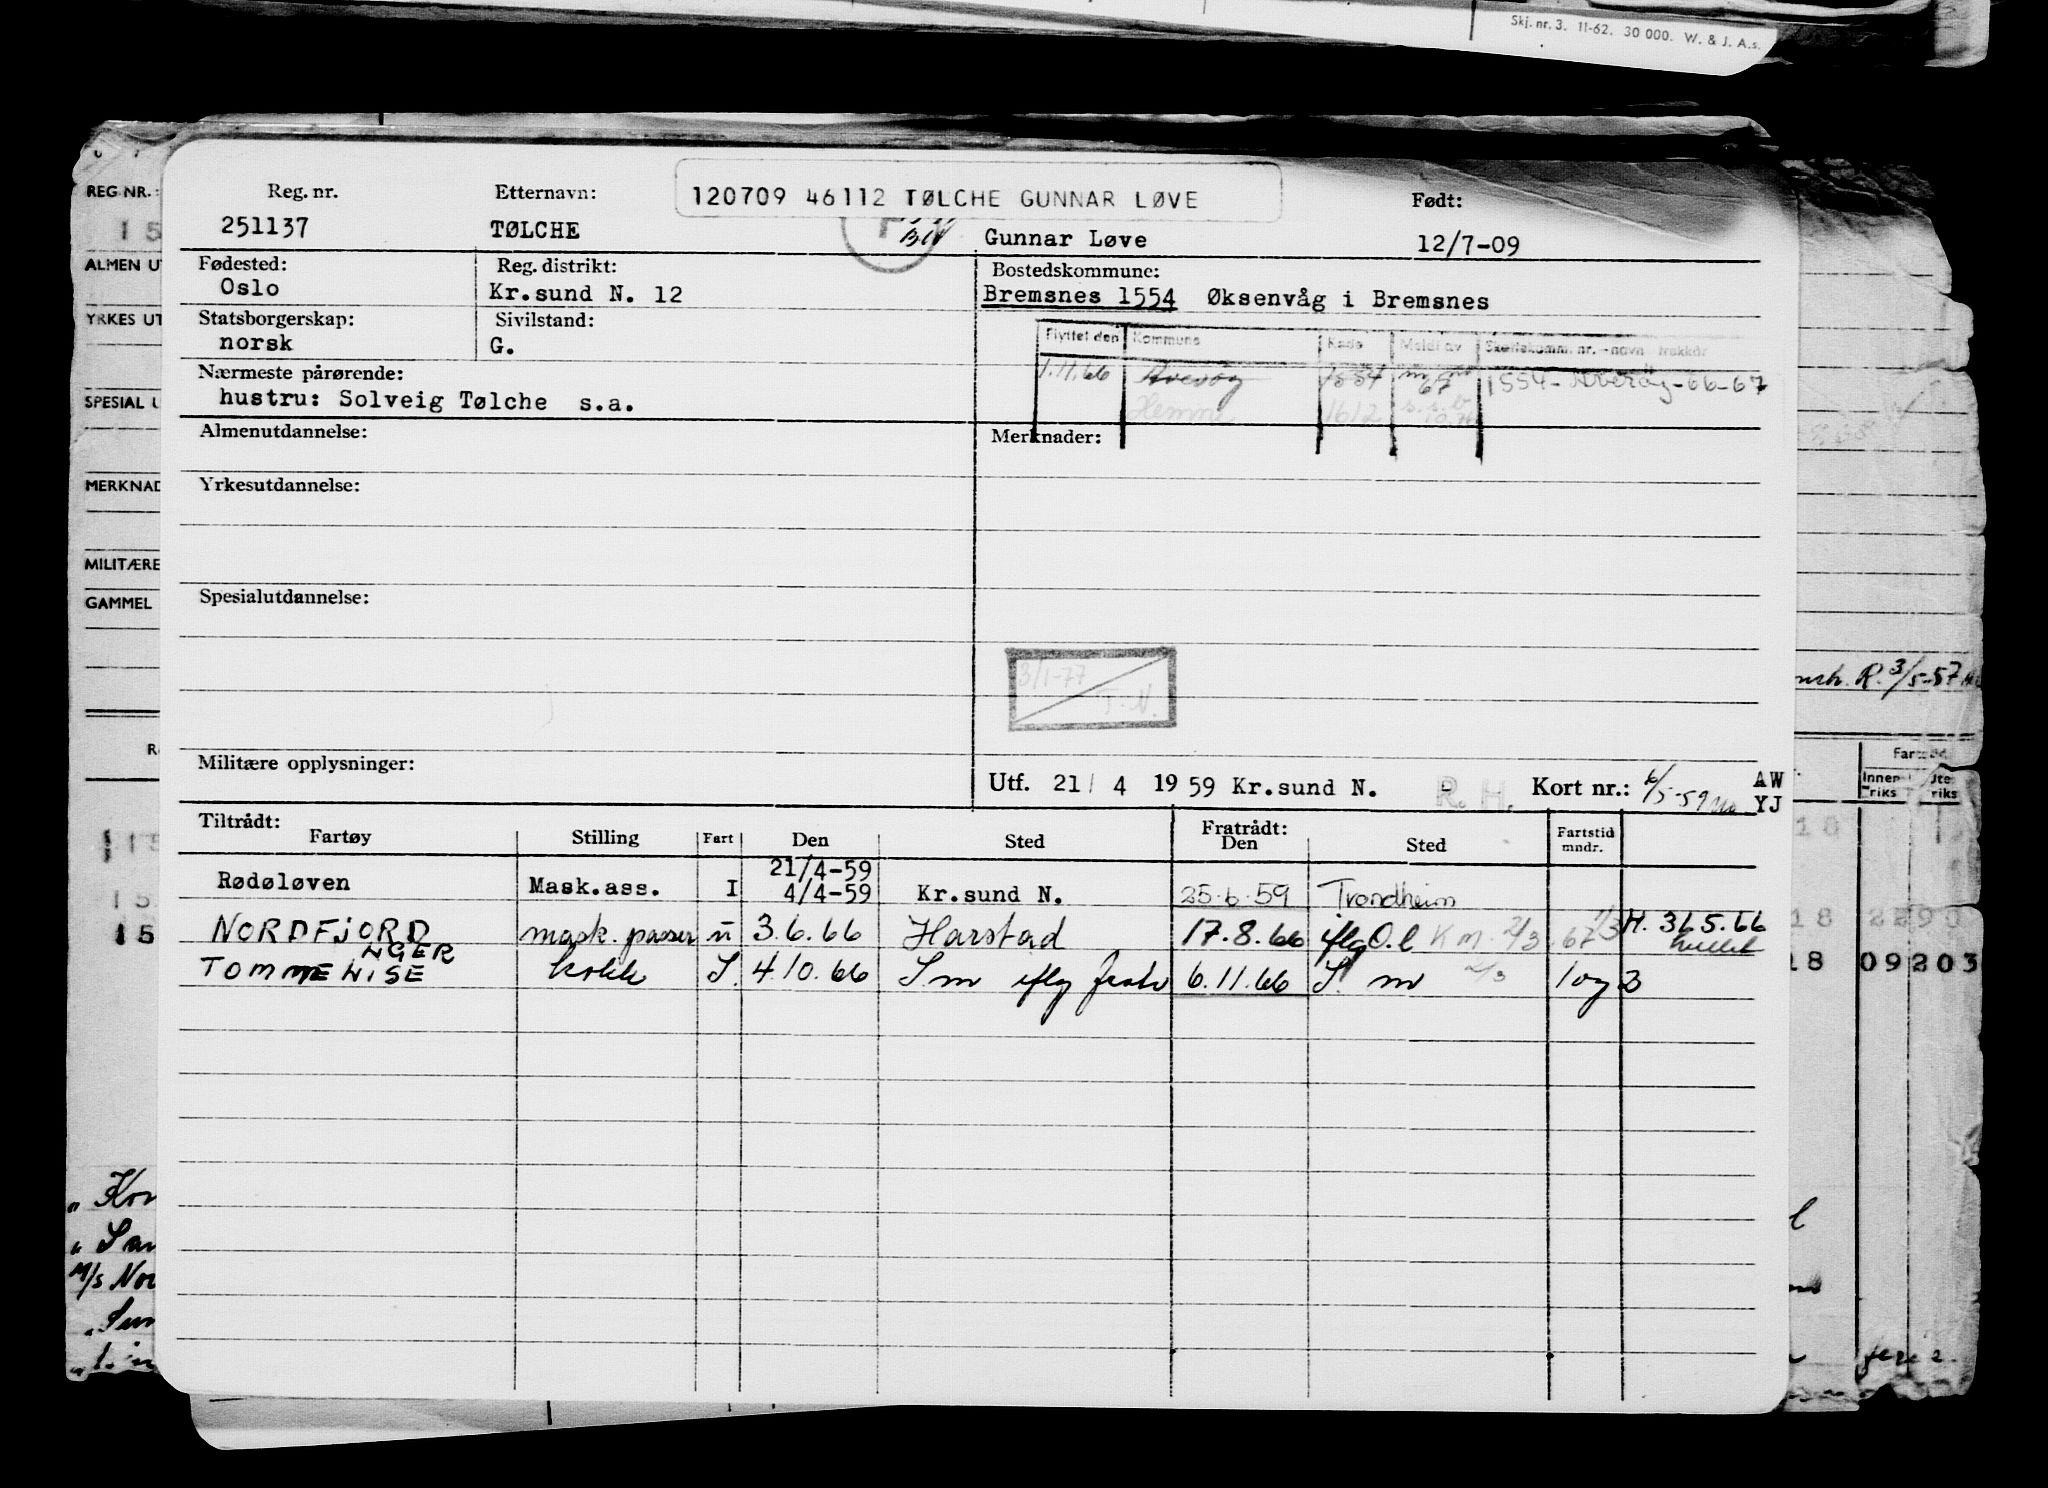 Skj. nr. 3. 11-62. 30 000. W. & J. A.s.
REG NR.:
15
ALMEN UT
YRKES UT
SPESIAL U
MERKNAD
MILITÆRE
GAMMEL
Reg. nr. Etternavn: 120709 46112 TØLCHE GUNNAR LØVE Født:
251137 TØLCHE Gunnar Løve 12/7-09
Fødested: Reg. distrikt: Bostedskommune:
Oslo Kr.sund N. 12 Bremsnes 1554 Øksenvåg i Bremsnes
Statsborgerskap: Sivilstand:
norsk G.
Flyttet den Kommune Kode Meldt av Skattekomm. nr. - navn - trekkår
1.11.66 Averøy 1554 67 1554-Averøy-66-67
Hemne 1612
Nærmeste pårørende:
hustru: Solveig Tølche s.a.
Almenutdannelse: Merknader:
Yrkesutdannelse:
Spesialutdannelse:
3/1-77
T.N.
R. 3/5-57
Militære opplysninger: Utf. 21/ 4 1959 Kr.sund N. R.H. Kort nr.: 6/5-59 AW
YJ
Tiltrådt: Fratrådt:
Fartøy Stilling Fart Den Sted Den Sted Fartstid mndr.
Innenriks
21/4-59
Rødøløven Mask.ass. I 4/4-59 Kr.sund N. 25.6.59 Trondheim
NORDFJORD mask. passer u 3.6.66 Harstad 17.8.66 iflg O.l Km. 2/3.67 2/3 H. 31.5.66
hullet
NGER
TOMMELISE kokk S. 4.10.66 Sm iflg fratr 6.11.66 S. m 2/3 1 og 3
18 2290
18 09203
M/s Nor